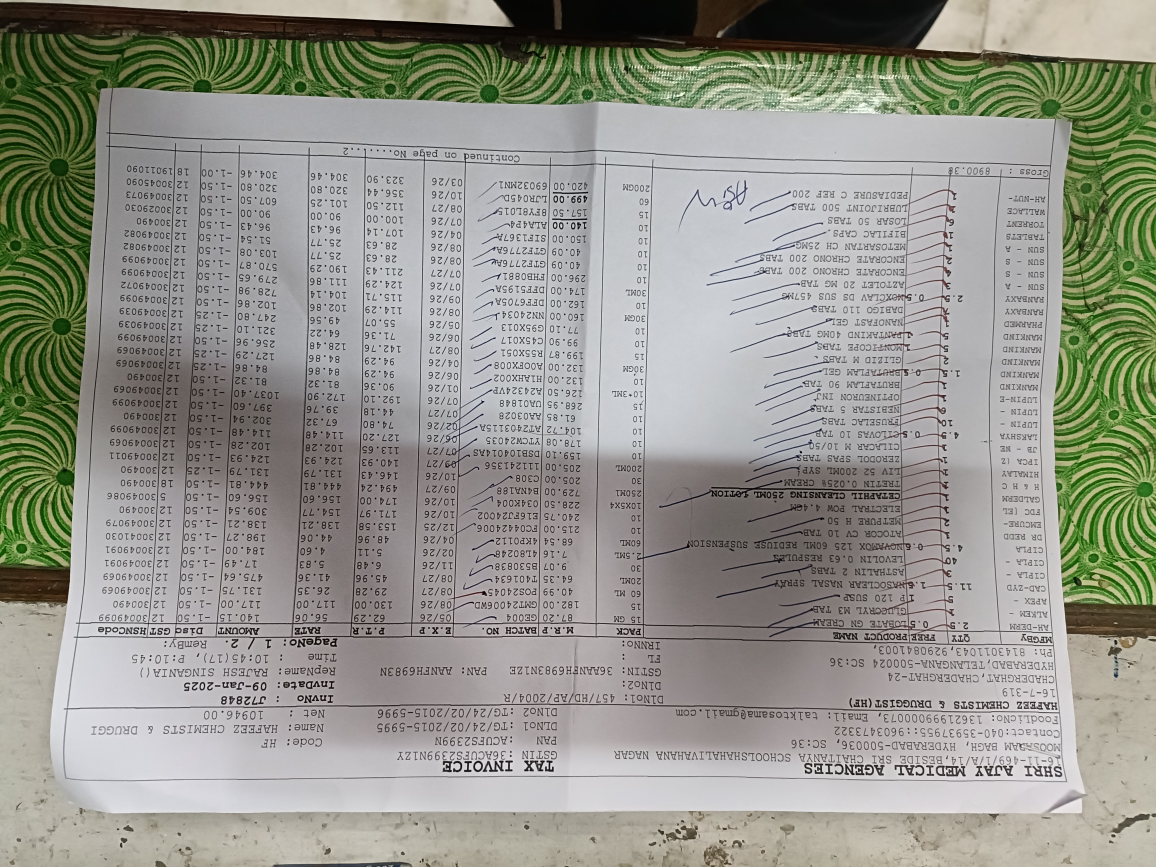 SHRI AJAY MEDICAL AGENCIES TAX INVOICE
16-11-469/1/A/14,BESIDE SRI CHAITANYA SCHOOLSHALIVAHANA NAGAR GSTIN :36ACUFS2399N1ZY
MOOSARAM BAGH, HYDERABAD-500036, SC:36 PAN :ACUFS2399N Code: HF
Contact:040-35937955:9603473322 DLNO1 :TG/24/02/2015-5995 Name: HAFEEZ CHEMISTS & DRUGGI
FoodLicNo: 13621999000073, Email: talktosama@gmail.com DLNO2 :TG/24/02/2015-5996 Net : 10946.00
HAFEEZ CHEMISTS & DRUGGIST(HF) DLNo1:457/HD/AP/2004/R InvNo : J72848
16-7-319 DLNO2: InvDate: 09-Jan-2025
CHADERGHAT, CHADERGHAT-24 GSTIN: 36AANFH6983N1ZE PAN: AANFH6983N RepName: RAJESH SINGANIA()
HYDERABAD,TELANGANA-500024 SC:36 FL : Time : 10:45(17), P:10:45
Ph: 8143011043,9290841003, IRNNO: PageNo: 1 / 2. RemBy:
MFGBY QTY FREE PRODUCT NAME PACK M.R.P BATCH NO. E.X.P P.T.R RATE AMOUNT Disc GST HSNcode
AH-DERM 2.5 0.5 LOBATE GN CREAM 15 GM 87.20 GE004 05/26 62.29 56.06 140.15 -1.50 12 30049099
ALKEM - 1 GLUCRYL M3 TAB 15 182.00 GMT24006WD 08/26 130.00 117.00 117.00 -1.50 12 300490
APEX - 5 P 120 SUSP 60 ML 40.99 POS24005 08/27 29.28 26.35 131.75 -1.50 12 30049069
CAD-ZYD 11.5 NASOCLEAR NASAL SPRAY 20ML 64.35 T400634 08/27 45.96 41.36 475.64 -1.50 12
CIPLA - 3 ASTHALIN 2 TABS 30 9.07 BS30838 11/26 6.48 5.83 17.49 -1.50 12 30049091
CIPLA - 40 LEVOLIN 0.63 RESPULES 2.5ML 7.16 4LB0248 02/26 5.11 4.60 184.00 -1.50 12 30049091
CIPLA 4.5 NOVAMOX 125 60ML REDIUSE SUSPENSION 60ML 68.54 4KP0012 48.96 44.06 198.27 -1.50 12 30041030
DR REDD 1 ATOCOR CV 10 TAB 10 215.00 FC0424006 12/25 153.58 138.21 138.21 -1.50 12 30049079
ENCURE- 2 METPURE H 50 10 240.75 E16FJ24002 10/26 171.97 154.77 309.54 -1.50 12 300490
FDC (EL 1 ELECTRAL POW 4.4GM 10X5X4 228.50 034K004 10/26 174.00 156.60 156.60 -1.50 5 30049086
GALDERM 1 CETAPHIL CLEANSING 250ML LOTION 250ML 729.00 BANA188 09/27 494.24 444.81 444.81 -1.50 18 300490
H & H C 1 TRETIN 0.025% CREAM 30 205.00 C308 10/26 146.43 131.79 131.79 -1.25 12
HIMALAY 1 LIV 52 200ML SYP 200ML 205.00 112241356 09/27 140.93 124.93 124.93 -1.50 12 30049011
IPCA (Z 1 ZERODOL SPAS TABS 10 159.10 07/27 113.65 102.28 102.28 -1.50 12 30049069
JB - NE 1 CILACAR M 10/50 178.08 127.20 114.48 114.48 -1.50 12
LAKSHYA 4.5 0.5 CILOVAS 10 TAB 10 104.72 02/26 74.80 67.32 302.94 -1.50 12 300490
LUPIN - 10 TABS 10 61.85 AA03028 07/27 44.18 39.76 397.60 -1.50 12
LUPIN - 6 NEBISTAR 5 TABS 15 268.95 UA01848 07/27 192.10 172.90 1037.40 -1.50 12 30049069
LUPIN-E 1 OPTINEURON INJ 126.50 01/26 90.36 81.32 81.32 -1.50 12 300490
MANKIND 1 BRUTAFLAM 90 TAB 10 132.00 06/26 94.29 84.86 84.86 -1.50 12
MANKIND 1.5 0.5 BRUTAFLAM GEL 30GM 132.00 04/26 94.29 84.86 127.29 -1.25 12
MANKIND 2 GLIZID M TABS 15 199.87 08/27 142.76 128.48 256.96 -1.50 12
MANKIND 5 MONTICOPE TABS 10 99.90 C45X017 06/26 71.36 64.22 321.10 -1.50 12
MANKIND 5 PANTAKIND 40MG TABS 10 77.10 G95X013 05/26 55.07 49.56 247.80 -1.25 12 30049039
PHARMED 1 NANOFAST GEL 30GM 160.00 NN24034 08/26 114.29 102.86 102.86 -1.50 12
RANBAXY DABIGO 110 TABS 10 162.00 09/26 115.71 104.14 728.98 -1.50 12
RANBAXY 2.5 0.5 MOXCLAV DS SUS 457MG 30ML 174.00 DEF5195A 07/26 124.29 111.86 279.65 -1.50 12
SUN - A 3 AZTOLET 20 MG TAB 10 296.00 FBH0881 07/27 211.43 190.29 570.87 -1.50 12
SUN - S ENCORATE CHRONO 200 TABS 10 40.09 GTE2776A 08/26 28.63 25.77 103.08 -1.50 12 30049082
SUN - S ENCORATE CHRONO 200 TABS 10 40.09 GTE2776A 08/26 28.63 25.77 51.54 -1.50 12 30049082
SUN - A METOSARTAN CH 25MG 10 150.00 SIF1367A 04/26 107.14 96.43 96.43 -1.50 12 300490
TABLETS BIFILAC CAPS. 10 140.00 07/26 100.00 90.00 90.00 -1.50 12 30029030
TORRENT 6 LOSAR 50 TABS 15 157.50 BFY8L015 08/27 112.50 101.25 607.50 -1.50 12
WALLACE 1 LUBRIJOINT 500 TABS 60 499.00 10/26 356.44 320.80 320.80 -1.50 12 30045090
AH-NUT- 1 PEDIASURE C REF 200 200GM 420.00 69032MN1 03/26 323.90 304.46 304.46 -1.00 18 19011090
Gross : 8900.38 Continued on page No.....2